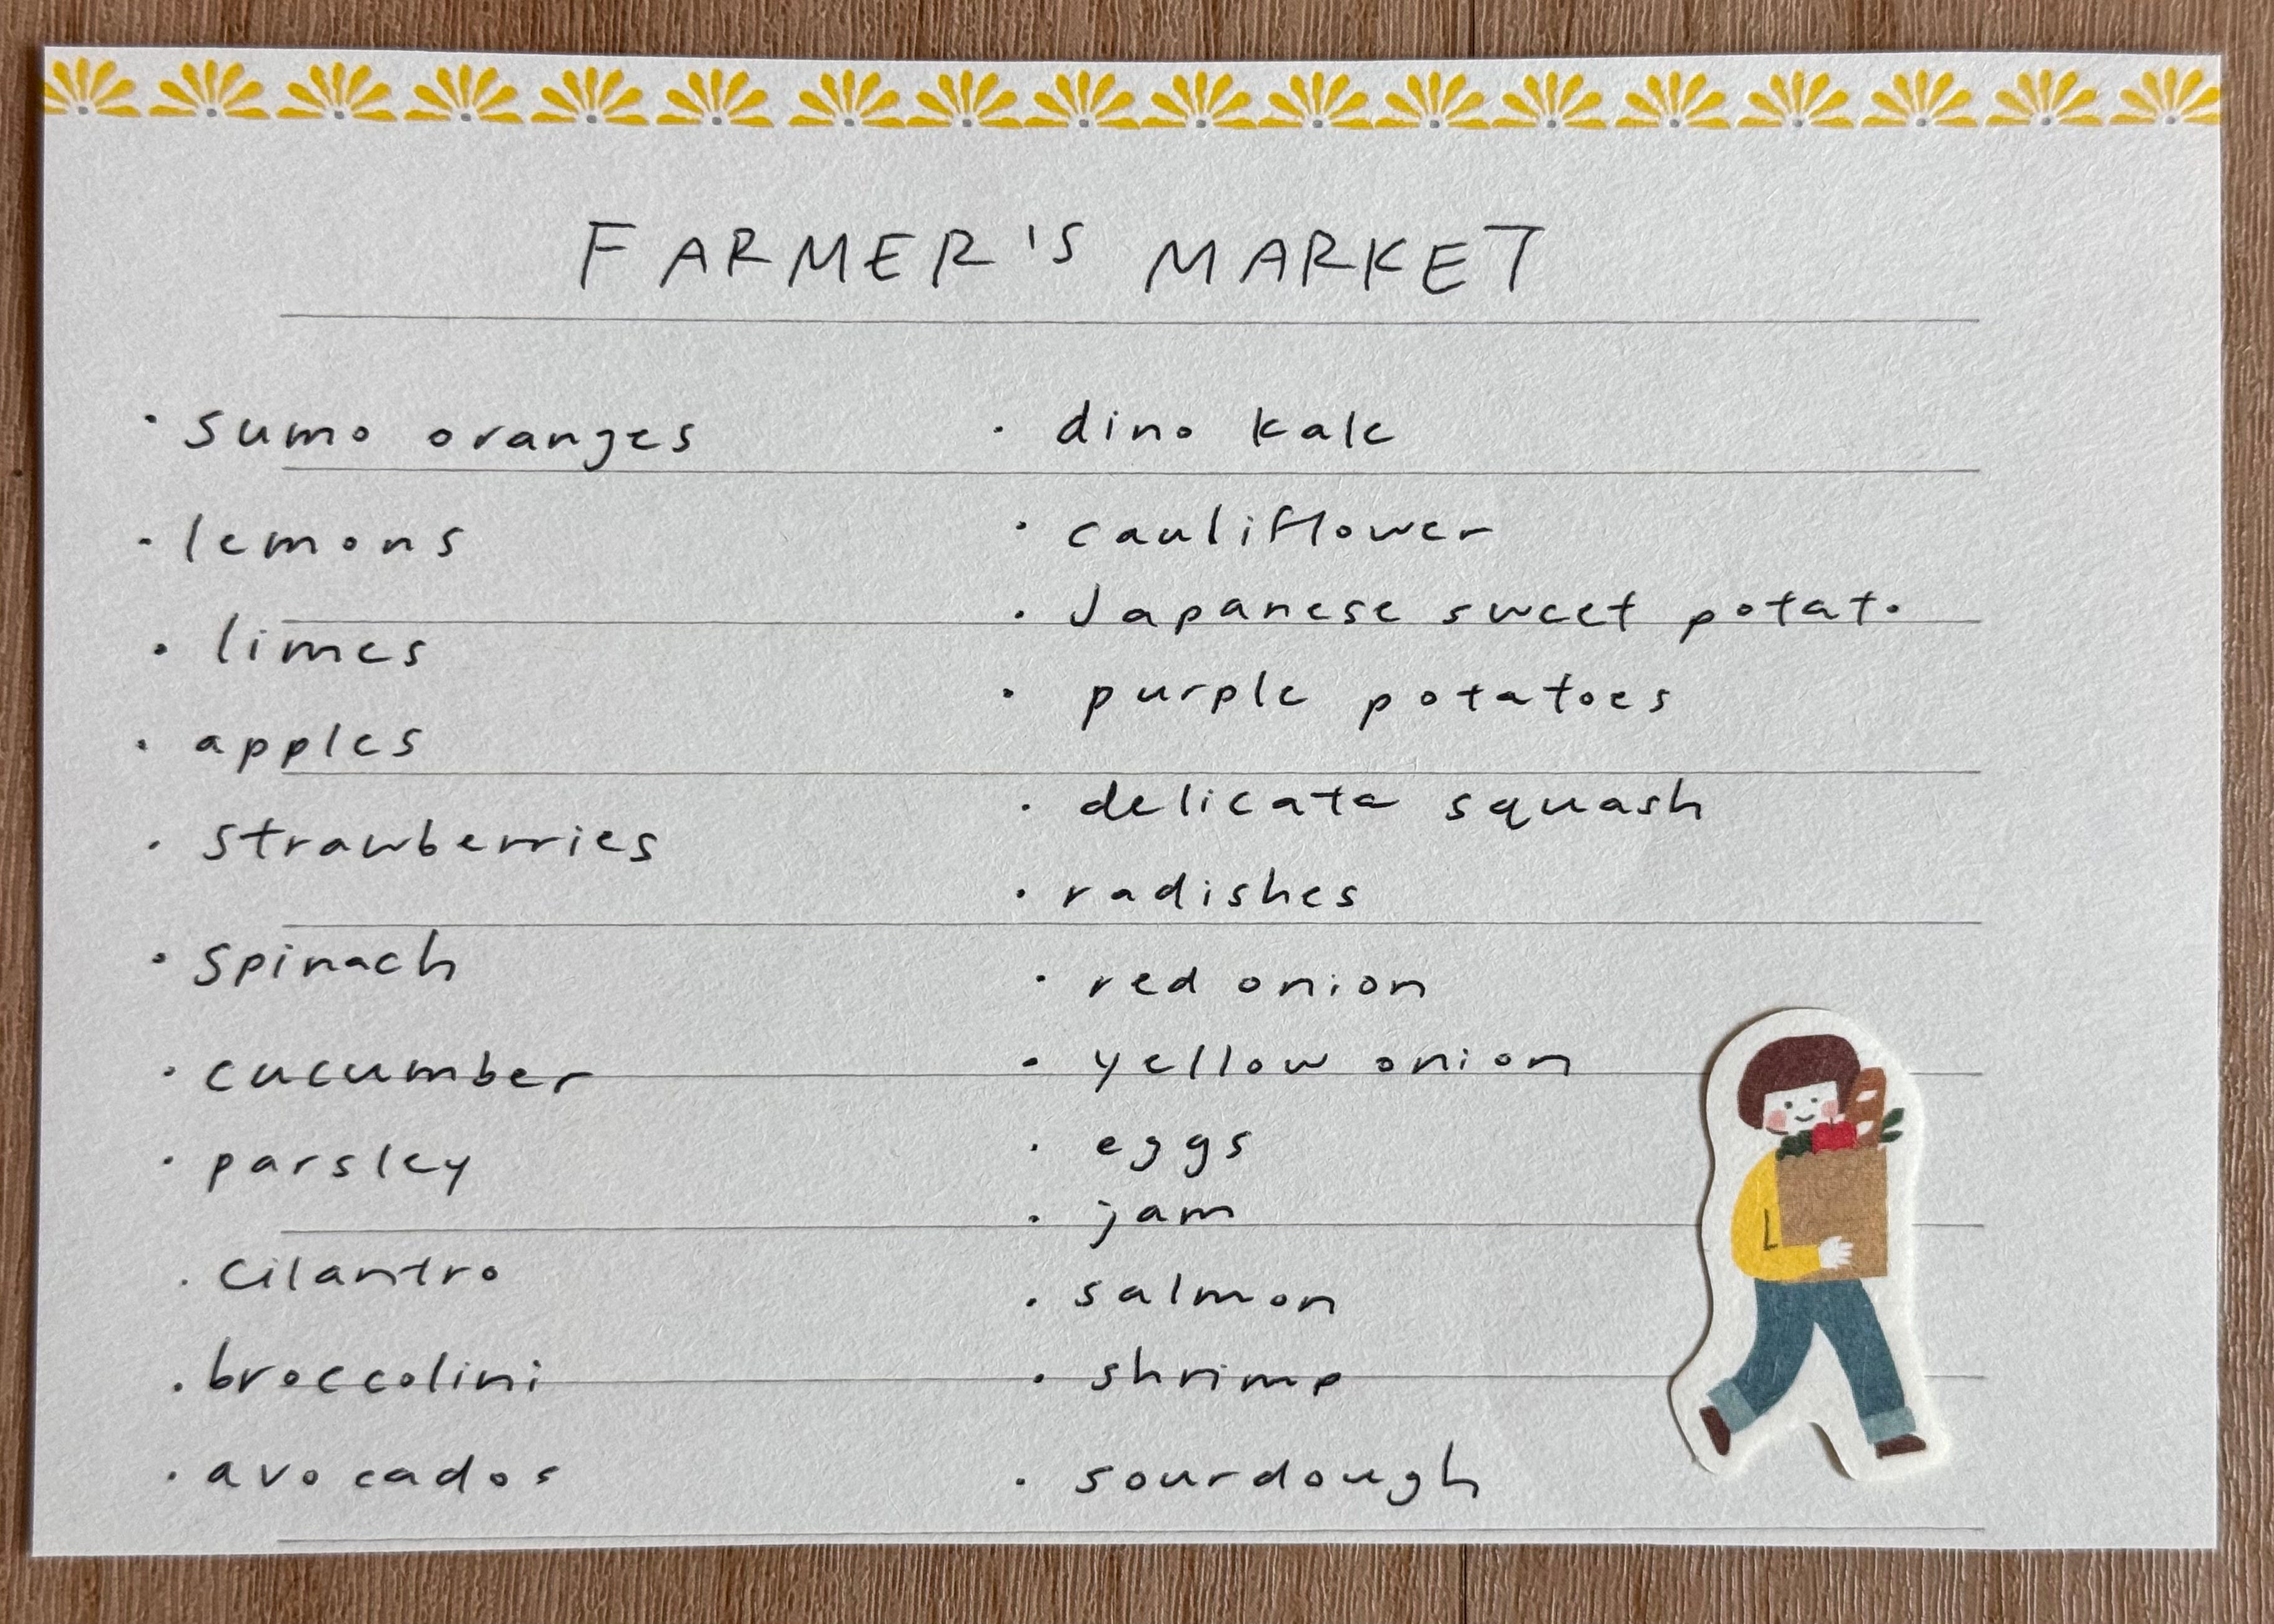 FARMER'S MARKET
· sumo oranges
· lemons
· limes
· apples
· strawberries
· spinach
· cucumber
· parsley
· cilantro
· broccolini
· avocados
· dino kale
· cauliflower
· Japanese sweet potato
· purple potatoes
· delicata squash
· radishes
· red onion
· yellow onion
· eggs
· jam
· salmon
· shrimp
· sourdough